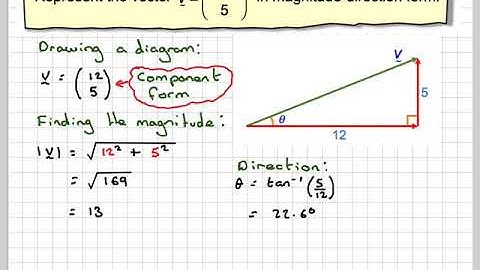 Represent the vector v = ( 5 ) in magnitude direction form.
Drawing a diagram:
v = (12
5)
Component
form
Finding the magnitude:
|v| = √12² + 5²
= √169
= 13
v
5
θ
12
Direction:
θ = tan⁻¹(5/12)
= 22.6°